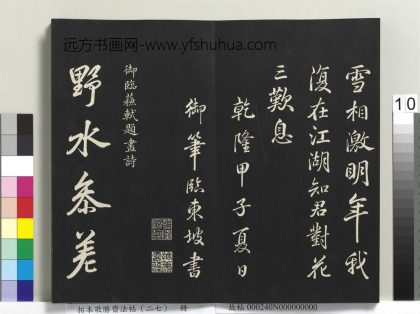 远方书画网-www.yfshuhua.com
雪相激明年我
復在江湖知君對花
三歎息
乾隆甲子夏日
御筆臨東坡書
御臨蘇軾題畫詩
野水參差
10
拓本敬勝齋法帖（二七） 冊
故帖 000240N000000000